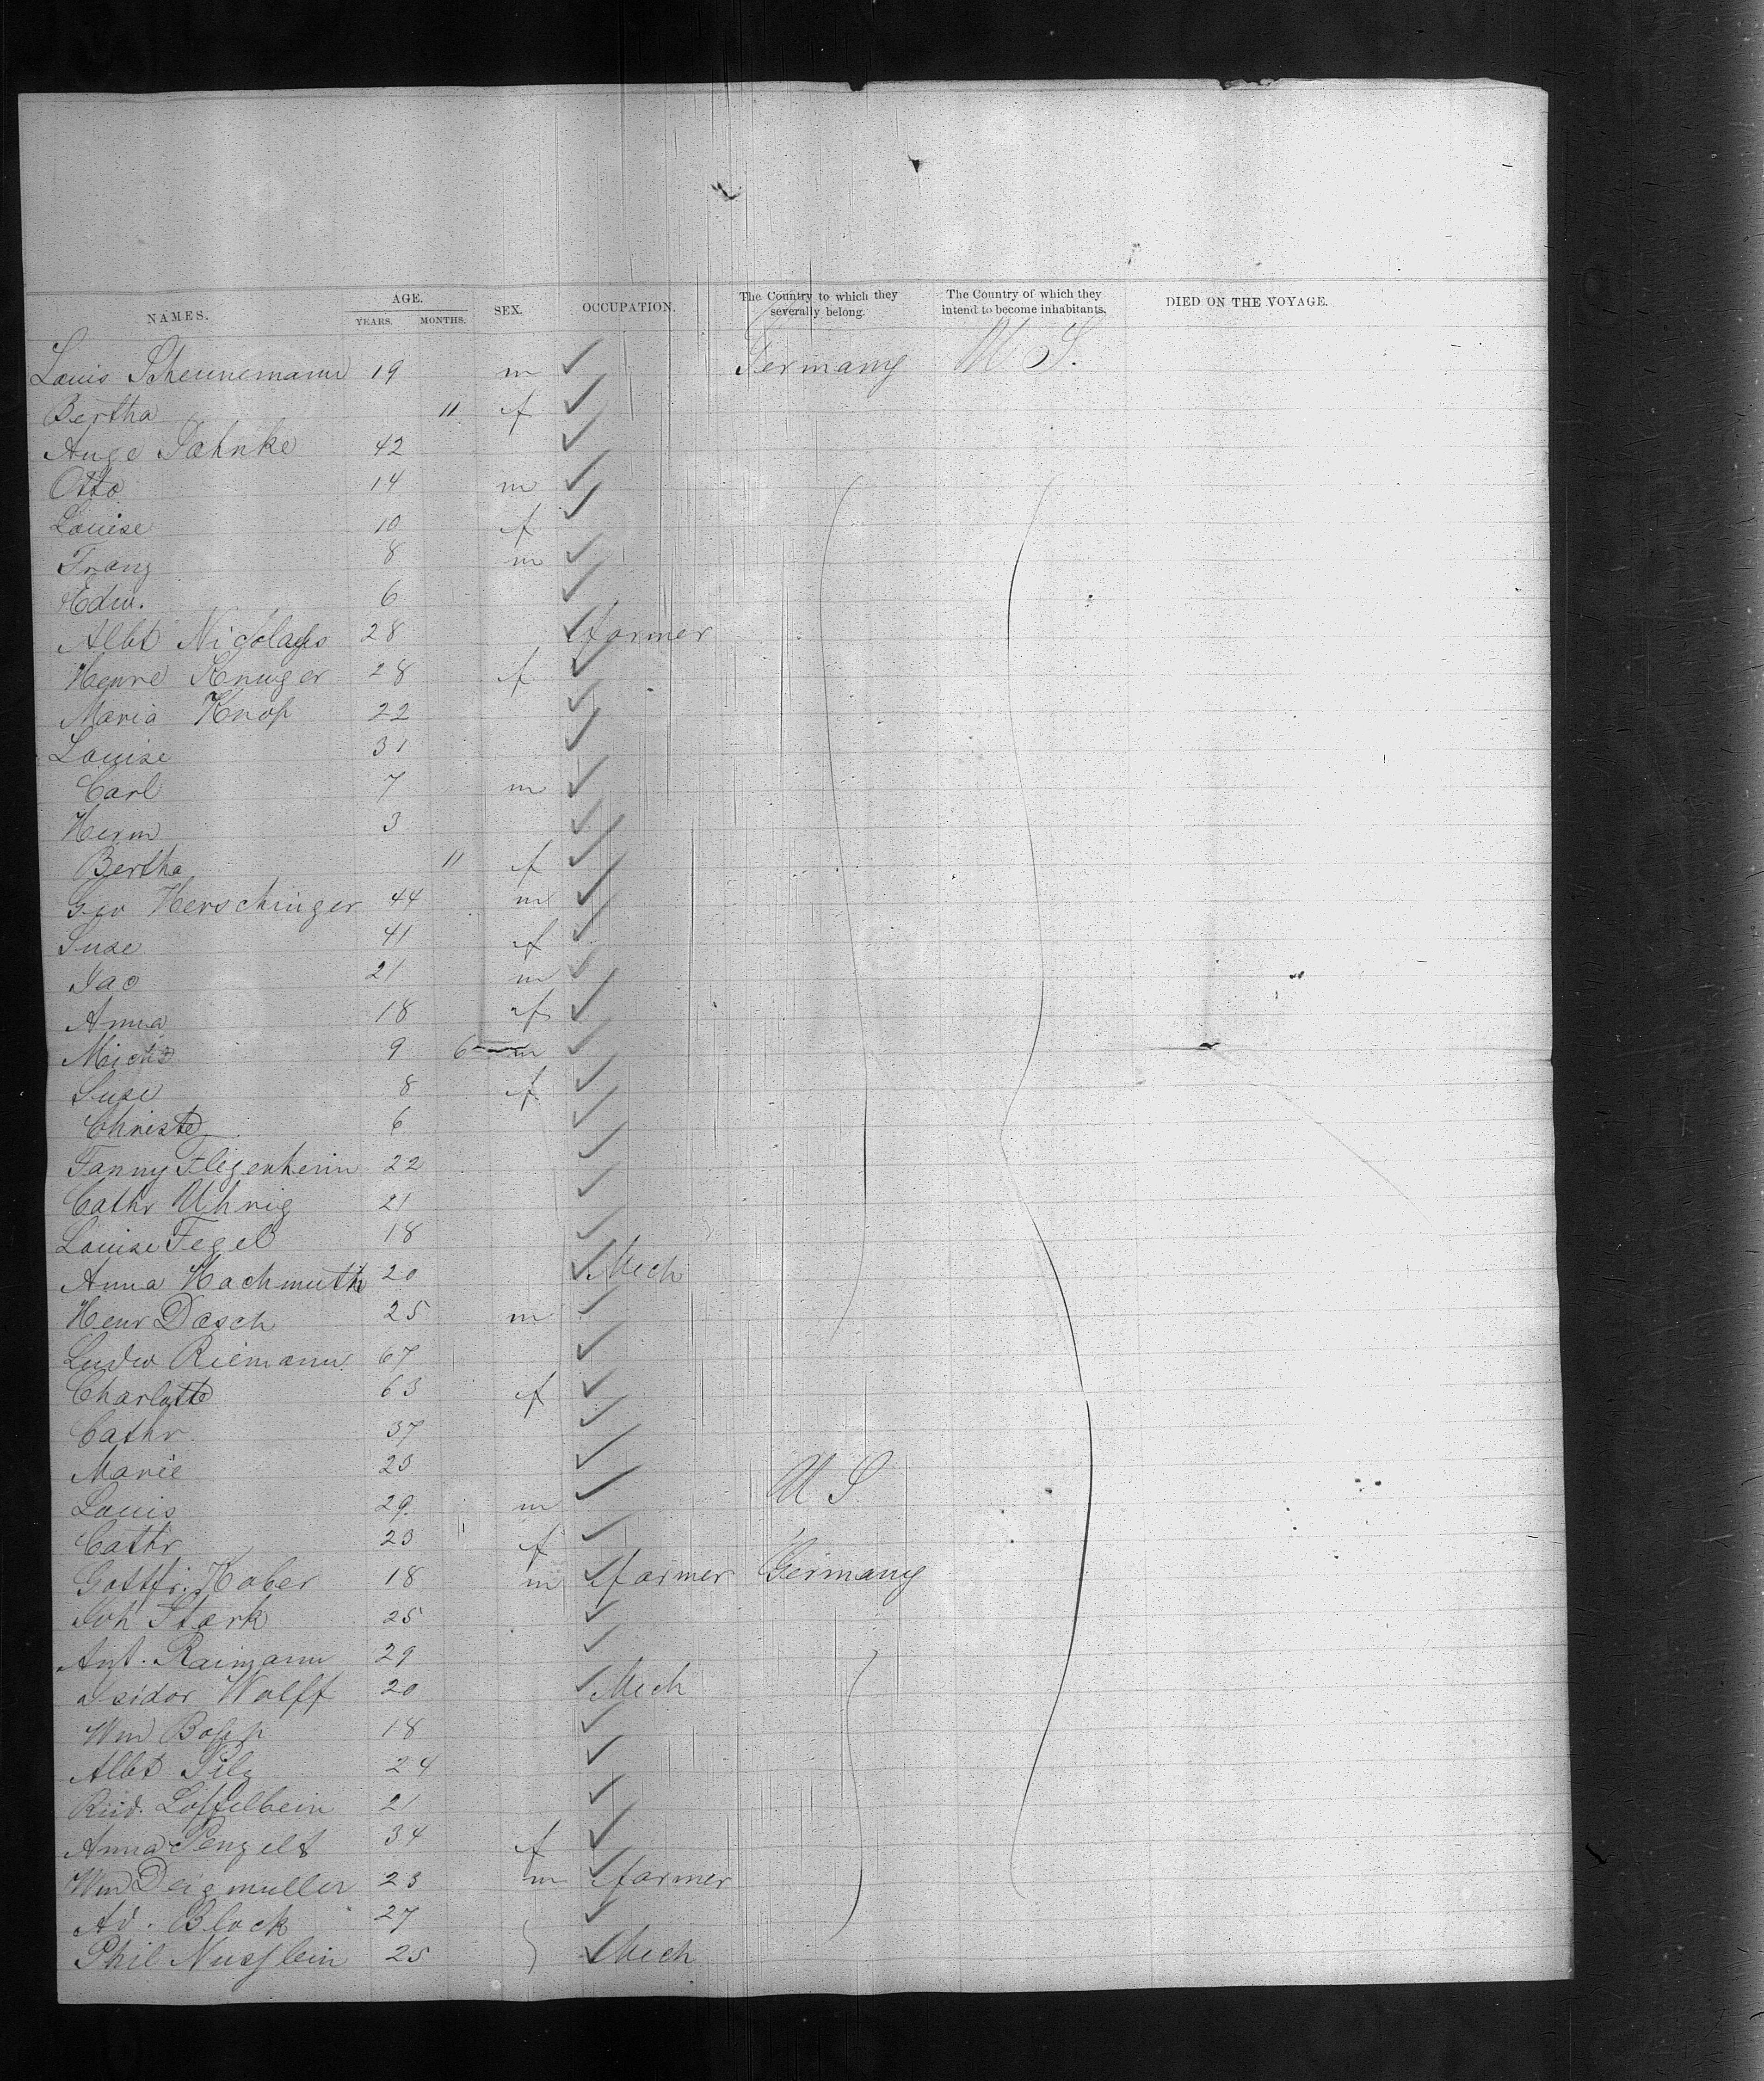 NAMES. AGE. YEARS. MONTHS. SEX. OCCUPATION. The Country to which they severally belong. The Country of which they intend to become inhabitants. DIED ON THE VOYAGE.
Louis Scheunemann 19 m Germany U.S.
Bertha 11 f
Auge Jahnke 42
Otto 14 m
Louise 10 f
Franz 8 m
Edw. 6
Albt Nicolaus 28 farmer
Henre Kruger 28 f
Maria Knop 22
Louise 31
Carl 7 m
Herm 3
Bertha 11 f
Geo Herschinger 44 m
Suse 41 f
Jac 21 m
Anna 18 f
Michs 9 6 m
Suse 8 f
Christe 6
Fanny Flegenheim 22
Cathr Uhrig 21
Louise Fegel 18
Anna Hachmuth 20 Mech
Henr Dasch 25 m
Ludw Riemann 67
Charlotte 63 f
Cathr 37
Marie 23
Louis 29 m U S.
Cathr 23 f
Gottfr. Haber 18 m farmer Germany
Joh Stark 25
Ant. Raimann 29
Isidor Wolff 20 Mech
Wm Bopp 18
Albt Pilz 24
Rud. Löffelbein 21
Anna Pengelt 34 f
Wm Deigmuller 23 m farmer
Ad. Block 27
Phil Nusslein 25 Mech